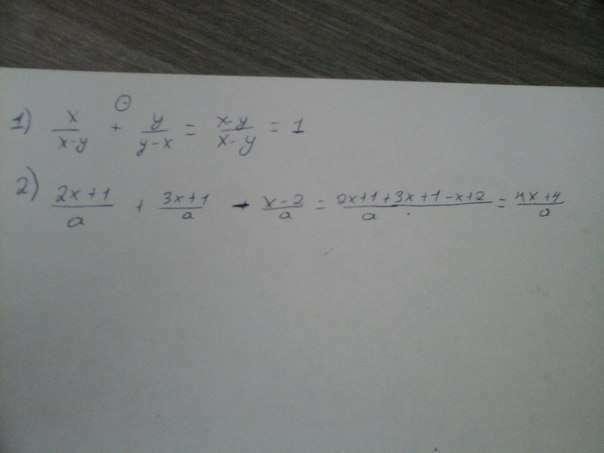 1) x/(x-y) ⊖ + y/(y-x) = (x-y)/(x-y) = 1
2) (2x+1)/a + (3x+1)/a - (x-2)/a = (2x+1+3x+1-x+2)/a = (4x+4)/a